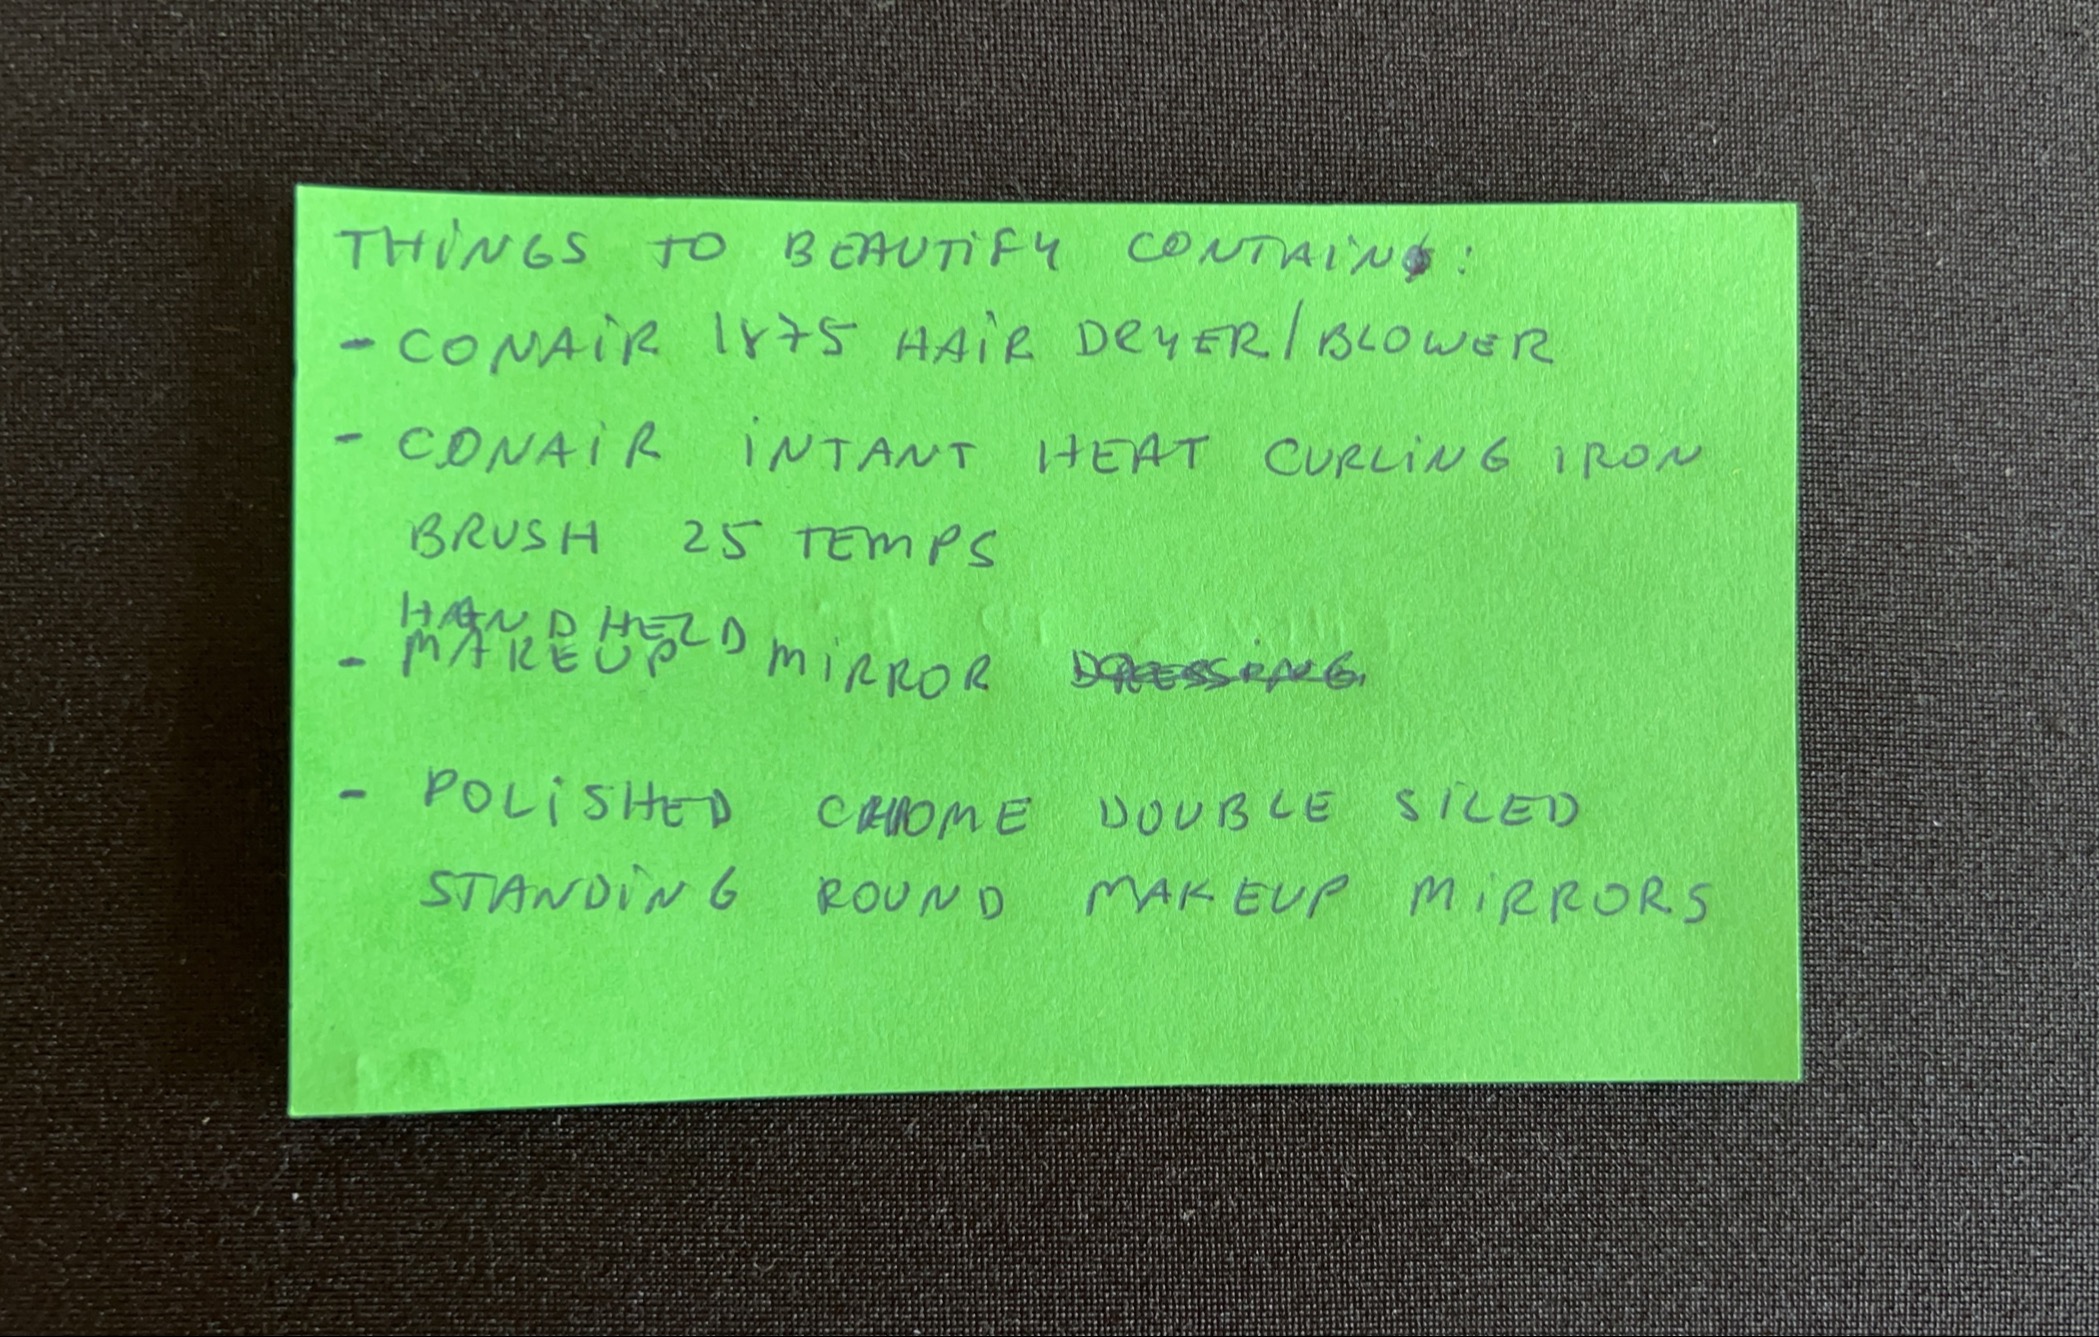 THINGS TO BEAUTIFY CONTAIN:
- CONAIR 1875 HAIR DRYER/BLOWER
- CONAIR INTANT HEAT CURLING IRON
BRUSH 25 TEMPS
HAND HELD
- MAKEUP MIRROR
- POLISHED CHOME DOUBLE SILED
STANDING ROUND MAKEUP MIRRORS